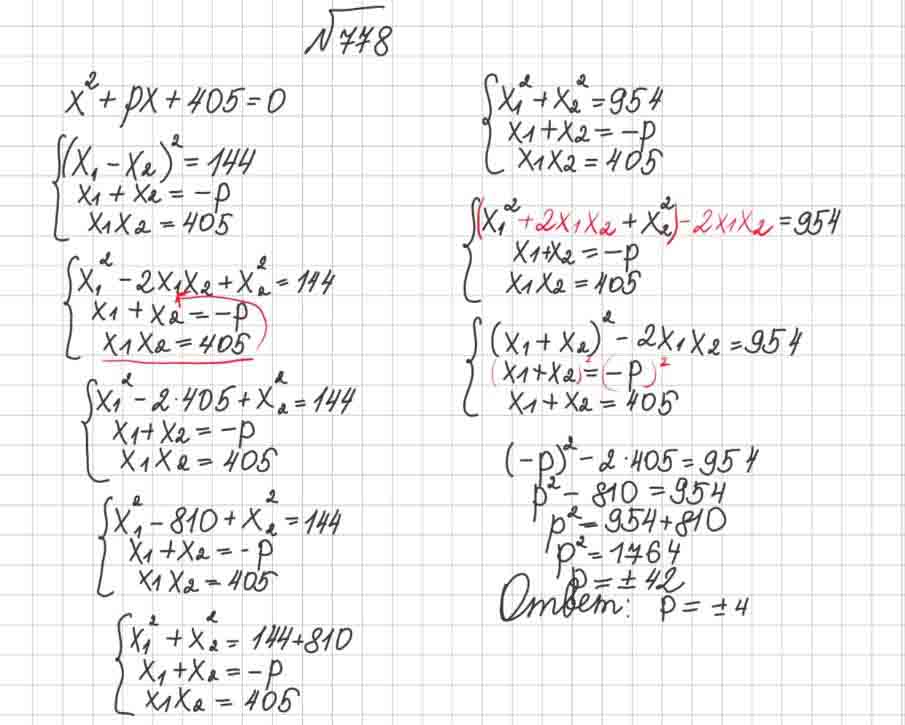 √778
x² + px + 405 = 0
(x₁ - x₂)² = 144
x₁ + x₂ = -p
x₁x₂ = 405
x₁² - 2x₁x₂ + x₂² = 144
x₁ + x₂ = -p
x₁x₂ = 405
x₁² - 2·405 + x₂² = 144
x₁ + x₂ = -p
x₁x₂ = 405
x₁² - 810 + x₂² = 144
x₁ + x₂ = -p
x₁x₂ = 405
x₁² + x₂² = 144+810
x₁ + x₂ = -p
x₁x₂ = 405
x₁² + x₂² = 954
x₁ + x₂ = -p
x₁x₂ = 405
(x₁² + 2x₁x₂ + x₂²) - 2x₁x₂ = 954
x₁+x₂ = -p
x₁x₂ = 405
(x₁ + x₂)² - 2x₁x₂ = 954
(x₁+x₂)² = (-p)²
x₁ + x₂ = 405
(-p)² - 2·405 = 954
p² - 810 = 954
p² = 954+810
p² = 1764
p = ±42
Ответ: p = ±4